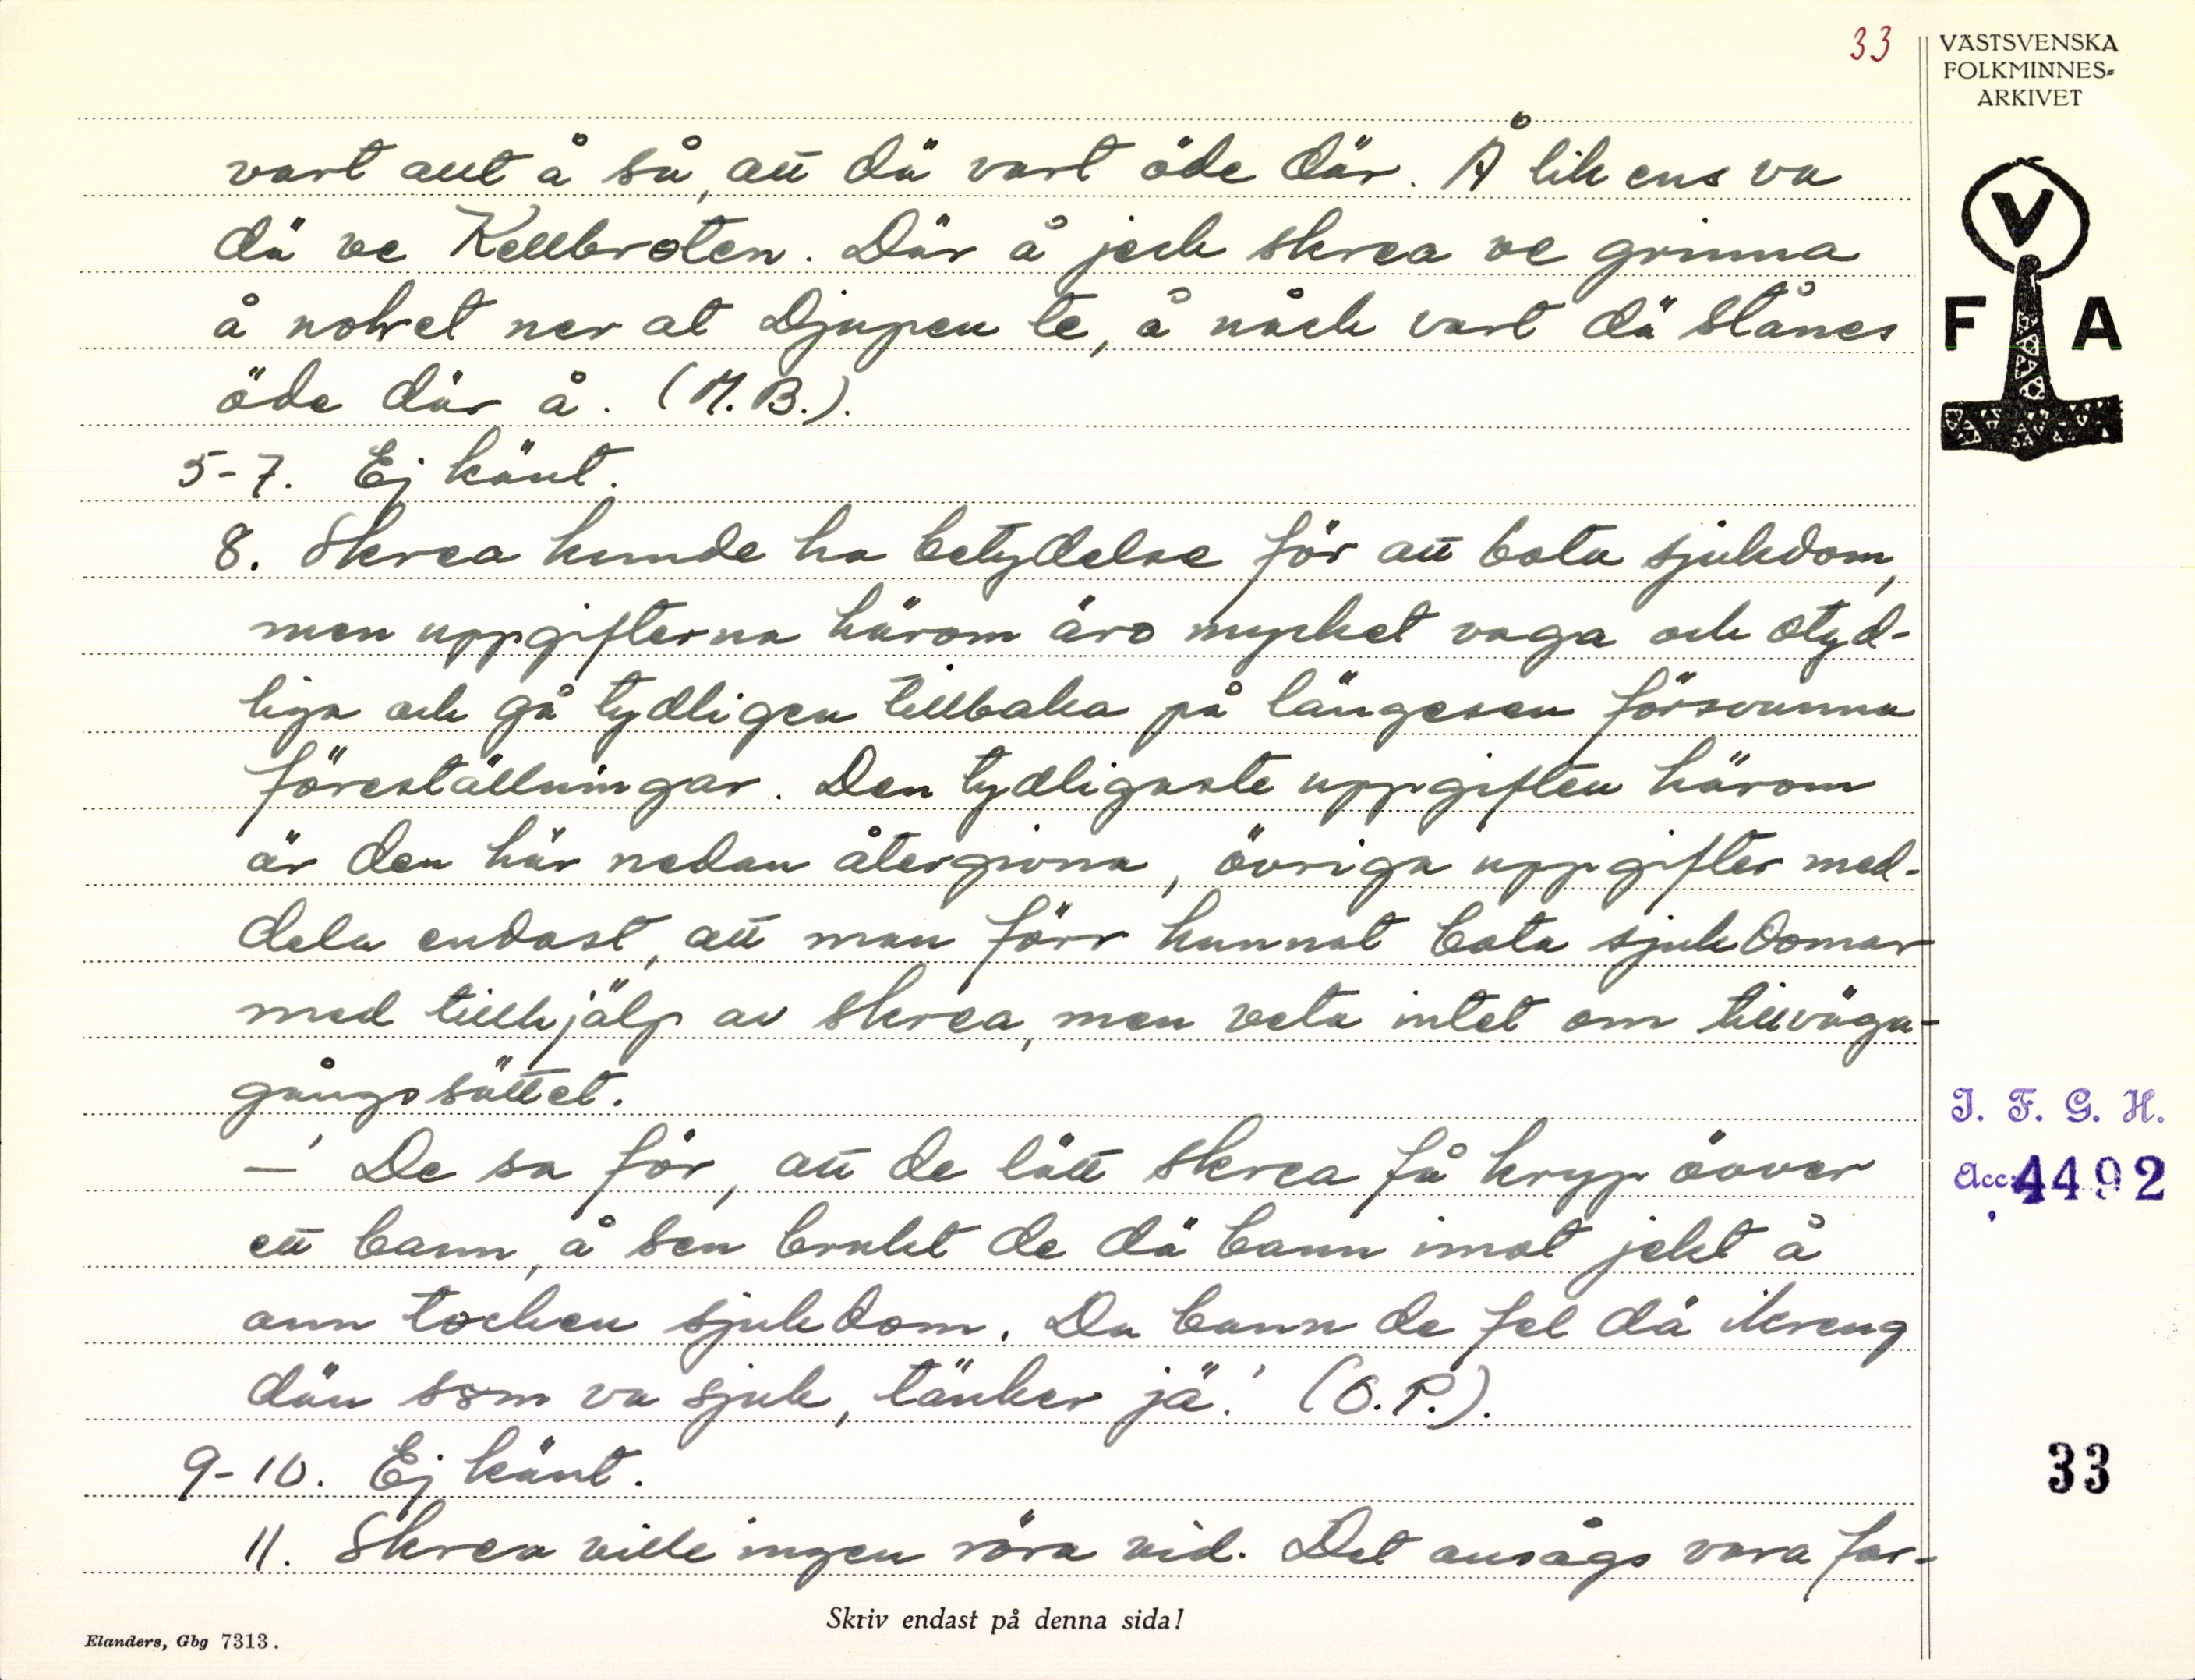 33
VÄSTSVENSKA
FOLKMINNES-
ARKIVET
V
F A
vart autt å så, att dä vart öde där. Å likens va
dä ve Kellbroten. Där å jeck skrea ve grinna
å nokret ner at Djupen te, å nåck vart dä stånes
öde där å. (M.B.).
5-7. Ej känt.
8. Skrea kunde ha betydelse för att bota sjukdom,
men uppgifterna härom äro mycket vaga och otyd-
liga och gå tydligen tillbaka på längesen försvunna
föreställningar. Den tydligaste uppgiften härom
är den här nedan återgivna, övriga uppgifter med-
dela endast, att man förr kunnat bota sjukdomar
med tillhjälp av skrea, men veta intet om tillväga-
gångssättet.
—' De sa för, att de lätt skrea få kryp övver
ett bann, å sen brukt de dä bann imot jekt å
ann tocken sjukdom. Da bann de fel dä ikreng
dän som va sjuk, tänker jä.' (O.P.).
9-10. Ej känt.
11. Skrea ville ingen röra vid. Det ansågs vara far-
J. F. G. H.
Acc: 4492
33
Skriv endast på denna sida!
Elanders, Gbg 7313.